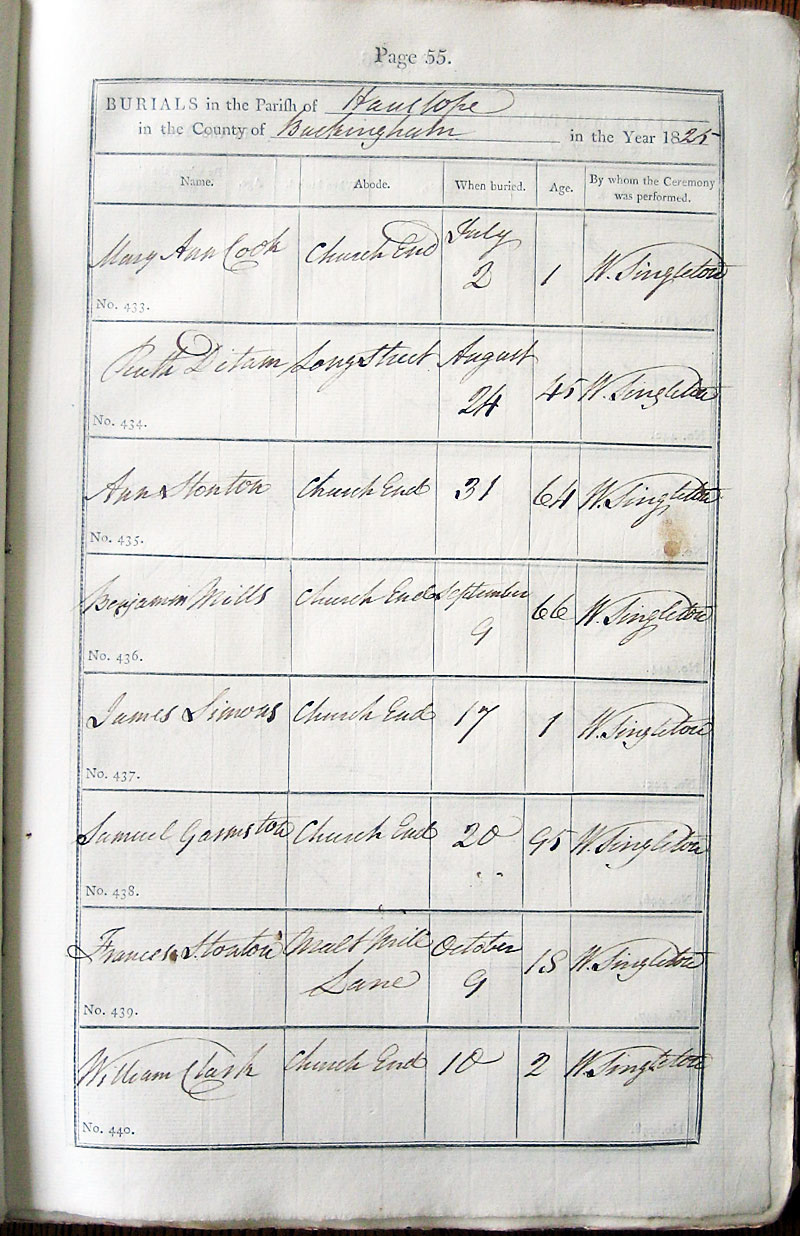 Page 55.
BURIALS in the Parish of Hanslope
in the County of Buckingham in the Year 1825
Name. Abode. When buried. Age. By whom the Ceremony was performed.
Mary Ann Cook Church End July 2 1 W. Singleton
No. 433.
Ruth Ditam Long Street August 24 45 W. Singleton
No. 434.
Ann Stonton Church End 31 64 W. Singleton
No. 435.
Benjamin Mills Church End September 9 66 W. Singleton
No. 436.
James Simons Church End 17 1 W. Singleton
No. 437.
Samuel Church End 20 95 W. Singleton
No. 438.
Frances Stonton Malt Mill Lane October 9 18 W. Singleton
No. 439.
William Clark Church End 10 2 W. Singleton
No. 440.